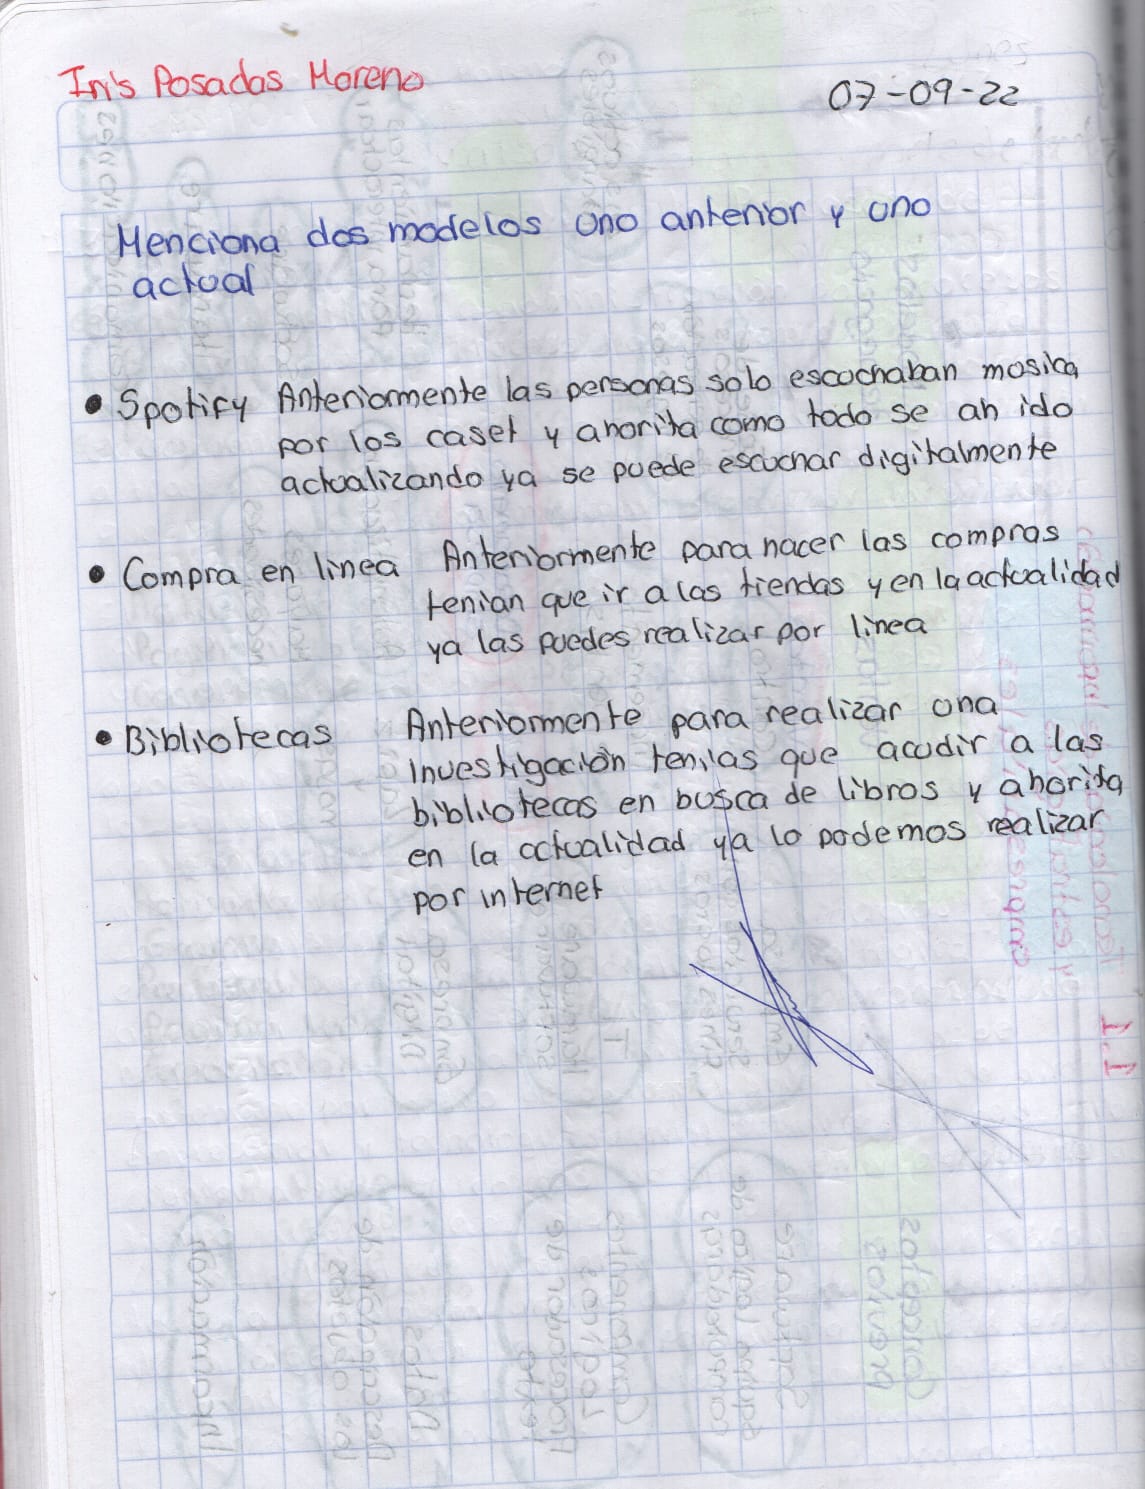 Iris Posadas Moreno
07-09-22
Menciona dos modelos uno anterior y uno
actual
• Spotify Anteriormente las personas solo escuchaban musica
por los caset y ahorita como todo se ah ido
actualizando ya se puede escuchar digitalmente
• Compra en linea Anteriormente para hacer las compras
tenian que ir a las tiendas y en la actualidad
ya las puedes realizar por linea
• Bibliotecas Anteriormente para realizar una
investigación tenias que acudir a las
bibliotecas en busca de libros y ahorita
en la actualidad ya lo podemos realizar
por internet